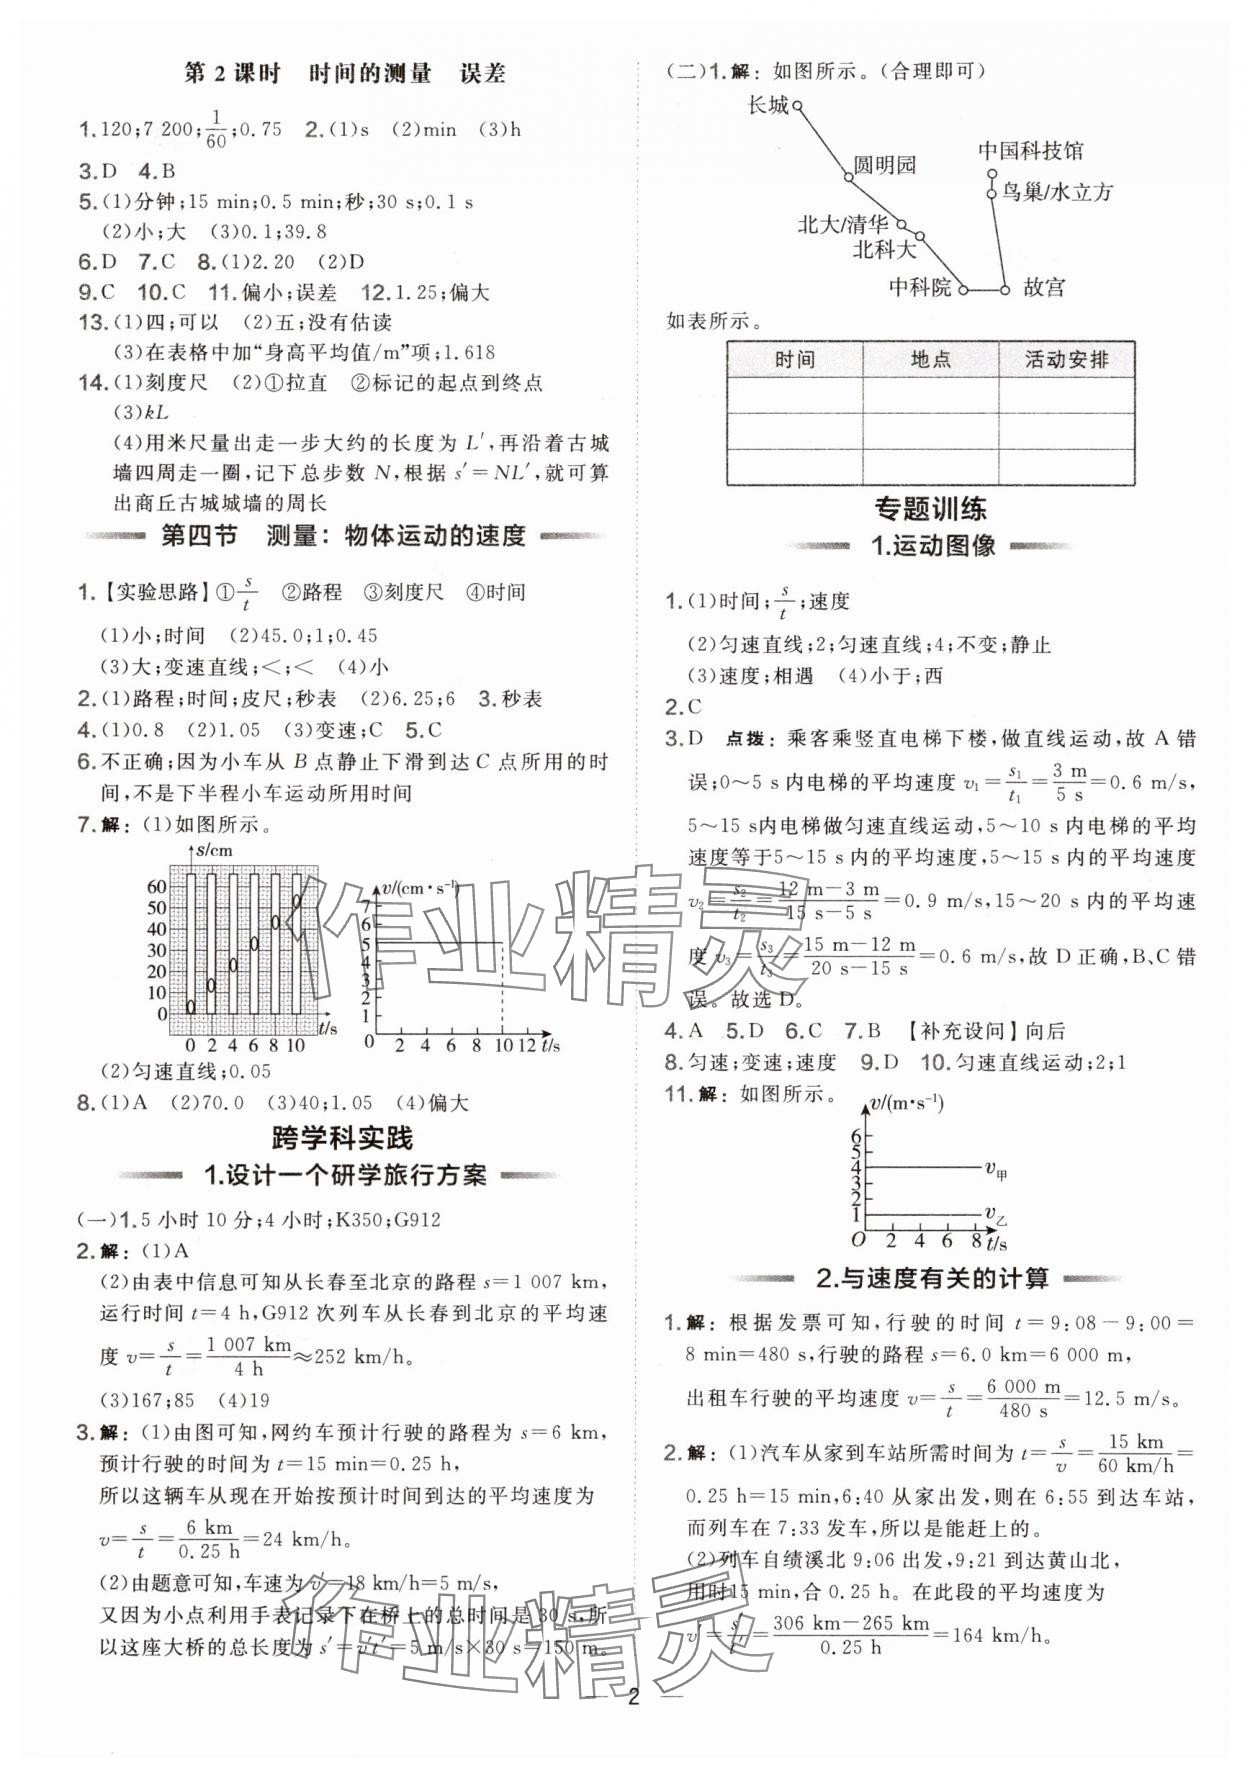 第 2 课时　时间的测量　误差
1.120;7 200;1/60;0.75　2.(1)s　(2)min　(3)h
3.D　4.B
5.(1)分钟;15 min;0.5 min;秒;30 s;0.1 s
(2)小;大　(3)0.1;39.8
6.D　7.C　8.(1)2.20　(2)D
9.C　10.C　11.偏小;误差　12.1.25;偏大
13.(1)四;可以　(2)五;没有估读
(3)在表格中加“身高平均值/m”项;1.618
14.(1)刻度尺　(2)①拉直　②标记的起点到终点
(3)kL
(4)用米尺量出走一步大约的长度为 L′,再沿着古城
墙四周走一圈,记下总步数 N,根据 s′=NL′,就可算
出商丘古城城墙的周长
第四节　测量：物体运动的速度
1.【实验思路】①s/t　②路程　③刻度尺　④时间
(1)小;时间　(2)45.0;1;0.45
(3)大;变速直线;<;<　(4)小
2.(1)路程;时间;皮尺;秒表　(2)6.25;6　3.秒表
4.(1)0.8　(2)1.05　(3)变速;C　5.C
6.不正确;因为小车从 B 点静止下滑到达 C 点所用的时
间,不是下半程小车运动所用时间
7.解：(1)如图所示。
s/cm
60
50
40
30
20
10
0
0 2 4 6 8 10
t/s
v/(cm·s⁻¹)
7
6
5
4
3
2
1
0 2 4 6 8 10 12 t/s
(2)匀速直线;0.05
8.(1)A　(2)70.0　(3)40;1.05　(4)偏大
跨学科实践
1.设计一个研学旅行方案
(一)1.5 小时 10 分;4 小时;K350;G912
2.解：(1)A
(2)由表中信息可知从长春至北京的路程 s=1 007 km,
运行时间 t=4 h,G912 次列车从长春到北京的平均速
度 v=s/t=1 007 km/4 h≈252 km/h。
(3)167;85　(4)19
3.解：(1)由图可知,网约车预计行驶的路程为 s=6 km,
预计行驶的时间为 t=15 min=0.25 h,
所以这辆车从现在开始按预计时间到达的平均速度为
v=s/t=6 km/0.25 h=24 km/h。
(2)由题意可知,车速为 v′=18 km/h=5 m/s,
又因为小点利用手表记录下在桥上的总时间是 30 s,所
以这座大桥的总长度为 s′=v′t′=5 m/s×30 s=150 m。
(二)1.解：如图所示。(合理即可)
长城
圆明园
中国科技馆
鸟巢/水立方
北大/清华
北科大
中科院
故宫
如表所示。
时间　地点　活动安排
专题训练
1.运动图像
1.(1)时间;s/t;速度
(2)匀速直线;2;匀速直线;4;不变;静止
(3)速度;相遇　(4)小于;西
2.C
3.D　点拨：乘客乘竖直电梯下楼,做直线运动,故 A 错
误;0～5 s 内电梯的平均速度 v₁=s₁/t₁=3 m/5 s=0.6 m/s,
5～15 s内电梯做匀速直线运动,5～10 s 内电梯的平均
速度等于5～15 s 内的平均速度,5～15 s 内的平均速度
v₂=s₂/t₂=12 m-3 m/15 s-5 s=0.9 m/s,15～20 s 内的平均速
度 v₃=s₃/t₃=15 m-12 m/20 s-15 s=0.6 m/s,故 D 正确,B、C 错
误。故选 D。
4.A　5.D　6.C　7.B　【补充设问】向后
8.匀速;变速;速度　9.D　10.匀速直线运动;2;1
11.解：如图所示。
v/(m·s⁻¹)
6
5
4
3
2
1
v甲
v乙
O 2 4 6 8 t/s
2.与速度有关的计算
1.解：根据发票可知,行驶的时间 t=9:08-9:00=
8 min=480 s,行驶的路程 s=6.0 km=6 000 m,
出租车行驶的平均速度 v=s/t=6 000 m/480 s=12.5 m/s。
2.解：(1)汽车从家到车站所需时间为 t=s/v=15 km/60 km/h=
0.25 h=15 min,6:40 从家出发,则在 6:55 到达车站,
而列车在 7:33 发车,所以是能赶上的。
(2)列车自绩溪北 9:06 出发,9:21 到达黄山北,
用时15 min,合 0.25 h。在此段的平均速度为
v′=s′/t′=306 km-265 km/0.25 h=164 km/h。
作业精灵
作业精灵
2